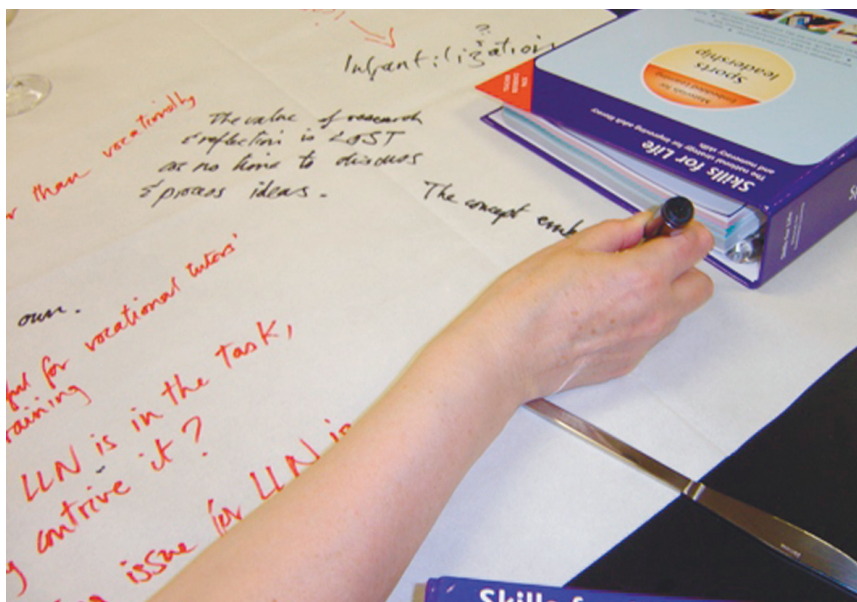 ?
Infantilization
r than vocationally
The value of research
& reflection is LOST
as no time to discuss
& process ideas.
The concept emb
own.
ful for vocational tutors'
raining
LLN is in the task,
contrive it?
issue for LLN is
Materials for
Embedded Learning
Sports
leadership
Skills for Life
The national strategy for improving adult literacy
and numeracy skills
Skills for Life
Skills f